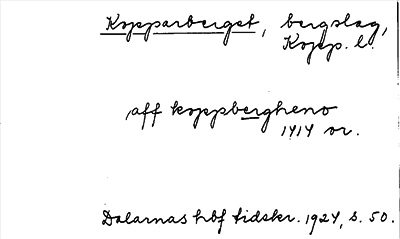 Kopparberget, bergslag,
Kopp. l.
aff koppbergheno
1414 or.
Dalarnas hbf tidskr. 1924, s. 50.